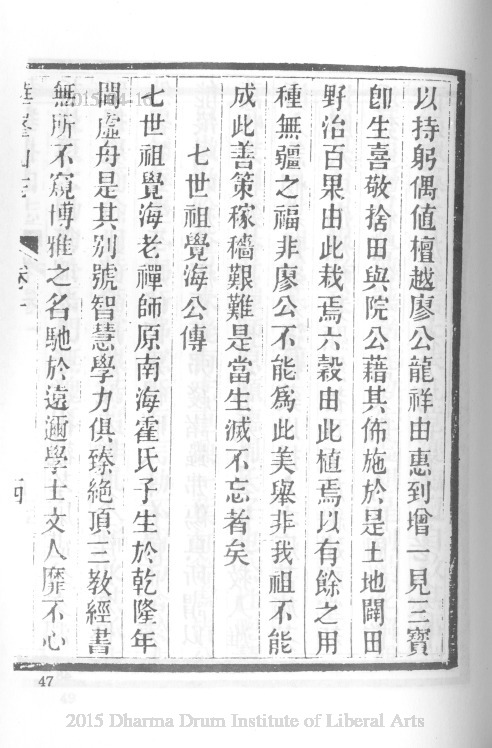 以持躬偶值檀越廖公龍祥由惠到增一見三寶
卽生喜敬捨田與院公藉其佈施於是土地闢田
野治百果由此栽焉六穀由此植焉以有餘之用
種無疆之福非廖公不能爲此美舉非我祖不能
成此善策稼穡艱難是當生滅不忘者矣
七世祖覺海公傳
七世祖覺海老禪師原南海霍氏子生於乾隆年
間虛舟是其別號智慧學力俱臻絶頂三教經書
無所不窺博雅之名馳於遠邇學士文人靡不心
卷一
四
47
2015 Dharma Drum Institute of Liberal Arts